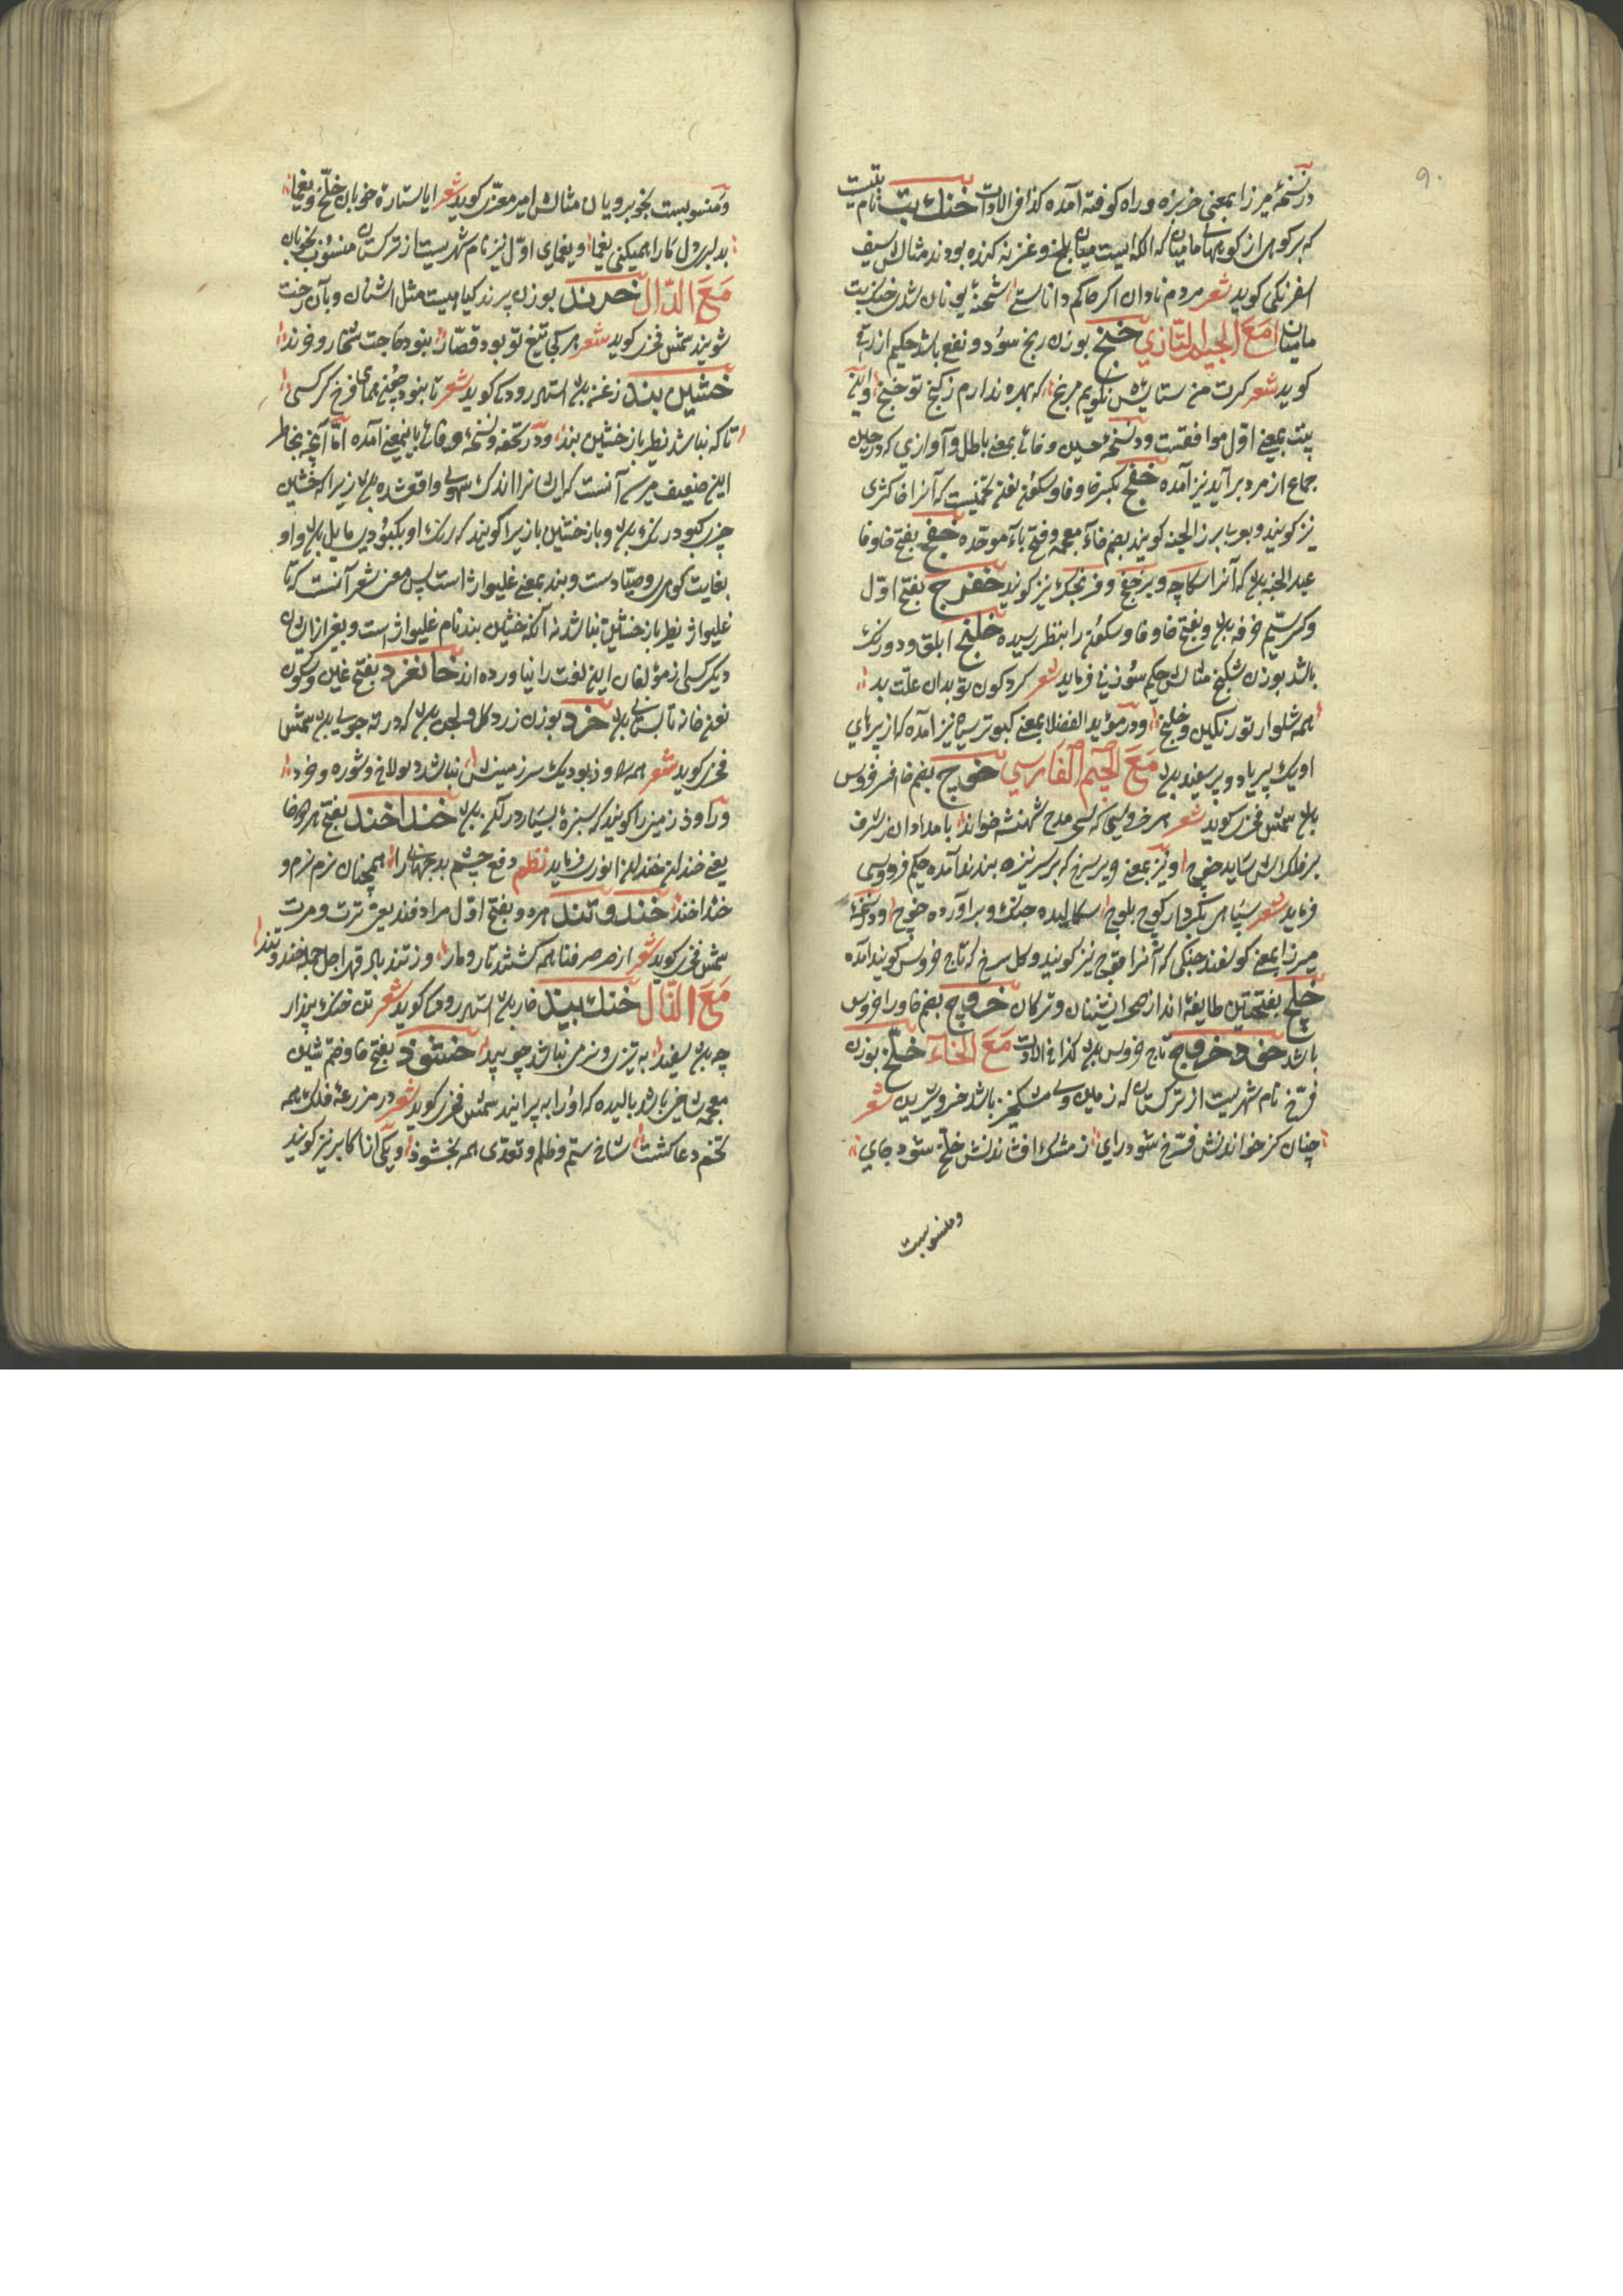 ۹۰
در نسخهٔ میرزا بمعنی خربزه و راه کوفته آمده کذا فی الادات خنک بت نام بتیست
که بر کوهی از کوههای بامیان که الکه ایست میان بلخ و غزنه کنده بودند مثالش سیف
اسفرنکی کوید شعر مردم نادان اکر حاکم داناستی شحنهٔ یونان شدی خنک بت
بامیان مع الجیم التازی خنج بوزن رنج سود و نفع باشد حکیم ازرقی
کوید شعر کرت من ستایش نکویم مرنج که بهره ندارم ز کنج تو خنج و این
بیت بمعنی اول موافقست و در نسخهٔ حسین وفائی بمعنی باطل و آوازی که در حین
جماع از مرد برآید نیز آمده خفج بکسر خا و فا و سکون لغتی تخمیست که آنرا خاکشی
نیز کویند و بعربی بزر الخبه کویند بضم خاء معجمه و فتح باء موحده خفج بفتح خا و فا
عبد الجنه باشد که آنرا سکاچه و برخفج و فرنجک نیز کویند خفرج بفتح اول
و کسر سیم خرفه باشد و بفتح خا و فا و سکون را بنظر رسیده خلنج ابلق و دو رنک
باشد بوزن شکنج مثالش حکیم سوزنی فرماید شعر کرد کون تو بدان علت بد
همه شلوار تو رنکین و خلنج و در مؤید الفضلا بمعنی کبوتر سیاه نیز آمده که از پرهای
او یک پر یا دو پر سفید باشد مع الجیم الفارسی خوچ بضم خا افسر خروس
باشد شمس فخری کوید شعر هر خروسی که کسی مدح شهنشه خواند بامدادان ز شرف
بر فلکش ساید خوچ و نیز بمعنی حریر سرخ که بر سر نیزه بندند آمده حکیم فردوسی
فرماید شعر سپاهی بکردار کوچ بلوچ سکالیده جنک و برآورده خوچ و در نسخهٔ
میرزا بمعنی کوسفند جنکی که آنرا قوچ نیز کویند و کل سرخ که تاج خروس کویند آمده
خلچ بفتحتین طایفهٔ اند از صحرا نشینان و ترکان خروچ بضم خا و را خروس
باشد خود خروچ تاج خروس باشد کذا فی الادات مع الخاء خلخ بوزن
فرخ نام شهریست از ترکستان که زمین وی مشکخیز باشد خسرو شیرین شعر
چنان کز خواندنش فرخ شود رای ز مشک افشاندنش خلخ شود جای
و منسوبست
و منسوبست بخوبرویان مثالش امیر معزی کوید شعر ایا ستاره خوبان خلخ و یغما
بدلبری دل ما را همیکنی یغما و یغمای اول نیز نام شهریست از ترکستان منسوب بخوبان
مع الدال خرند بوزن پرند کیاهیست مثل اشنان و بآن رخت
شویند شمس فخری کوید شعر هر کجا تیغ تو بود قصار نبود حاجت شخار و خرند
خشین بند زغن باشد استاد رودکی کوید شعر تا نبود چو همای فرخ کرکس
تا که نباشد نظیر باز خشین بند و در تحفه و نسخهٔ وفائی باینمعنی آمده اما آنچه بخاطر
این ضعیف میرسد آنست که ایشانرا اندک سهوی واقع شده باشد زیرا که خشین
چیزی کبود رنک باشد و باز خشین بازیرا کویند که رنک او بکبودی مایل باشد و او
بغایت کوهری و صیاد است و بند بمعنی غلیواژ است پس معنی شعر آنست که تا
غلیواژ نظیر باز خشین نباشد نه آنکه خشین بند نام غلیواژ است و بغیر ازایشان
دیکر کسی از مؤلفان این لغت را نیاورده اند خانغرد بفتح غین و سکون
یعنی خانه تابستانی باشد خرد بوزن زرد کل و لجن باشد که در ته جوی باشد شمس
فخری کوید شعر همه راوذ بود یک سر زمینش نباشد دیولاخ و شوره و خرد
و راوذ زمینی را کویند که سبزه بسیار در آنجا باشد خنداخند بفتح هر دو خا
یعنی خندان خندان انوری فرماید نظم دفع چشم بد جهانی را همچنان نرم نرم و
خنداخند خند و تند هر دو بفتح اول مرادفند یعنی ترت و مرت
شمس فخری کوید شعر از صرصر فنا همه کشتند تار و مار وز تند باد قهر اجل جمله خند و تند
مع الذال خنک بید خار باشد استاد رودکی کوید شعر تن خنک بید ار
چه باشد سفید به تری و نرمی نباشد چو بید خشوذ بفتح خا و ضم شین
معجمه شاخی باشد بالیده که او را به پیرایند شمس فخری کوید شعر در مزرعهٔ فلک همه
تخم دعا کشت شاخ ستم و ظلم و تعدی همه بخشوذ و یکی از اکابر نیز کوید